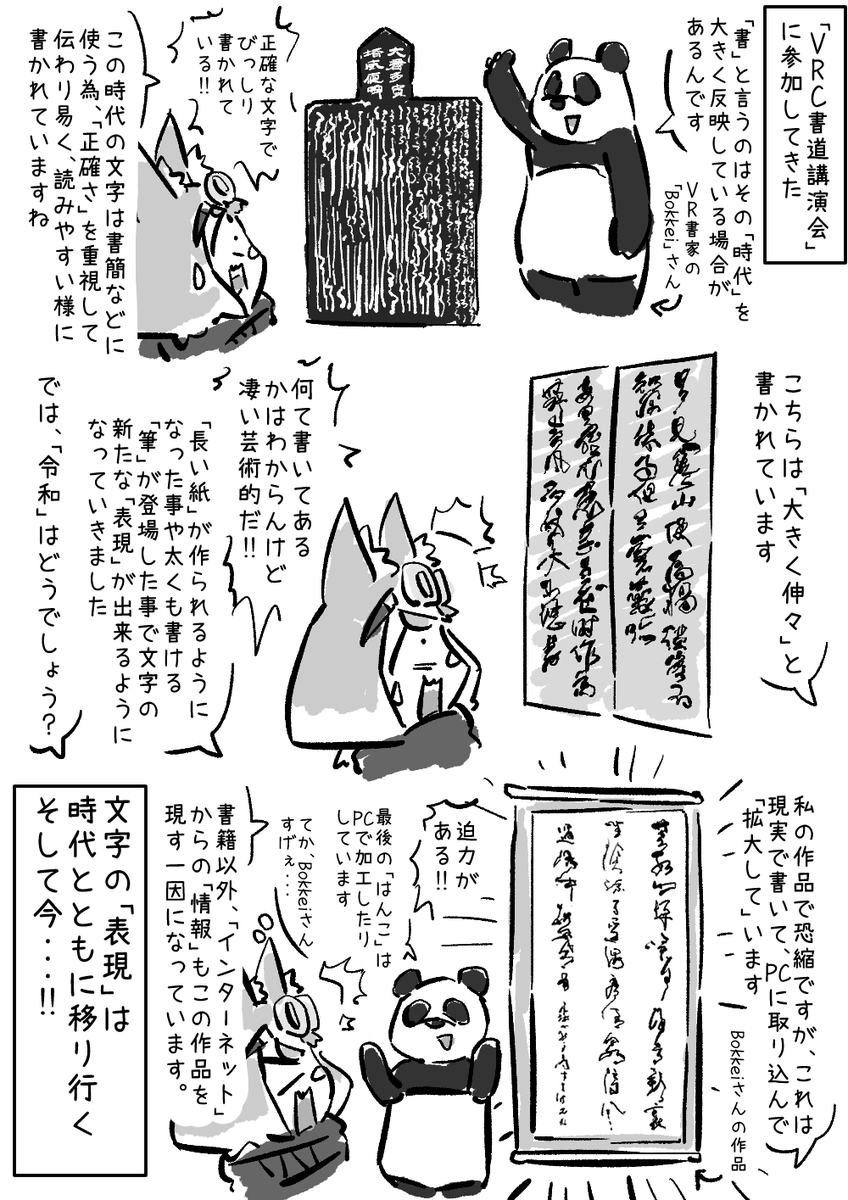 「VRC書道講演会」
に参加してきた
「書」と言うのはその「時代」を
大きく反映している場合が
あるんです
VR書家の
「Bokkei」さん
正確な文字で
びっしり
書かれて
いる!!
この時代の文字は書簡などに
使う為、「正確さ」を重視して
伝わり易く、読みやすい様に
書かれていますね
こちらは「大きく伸々」と
書かれています
何て書いてある
かはわからんけど
凄い芸術的だ!!
「長い紙」が作られるように
なった事や太くも書ける
「筆」が登場した事で文字の
新たな「表現」が出来るように
なっていきました
では、「令和」はどうでしょう?
私の作品で恐縮ですが、これは
現実で書いて、PCに取り込んで
「拡大して」います
Bokkeiさんの作品
迫力が
ある!!
最後の「はんこ」は
PCで加工したり
しています
てか、Bokkeiさん
すげぇ・・・
書籍以外、「インターネット」
からの「情報」もこの作品を
現す一因になっています。
文字の「表現」は
時代とともに移り行く
そして今・・・!!